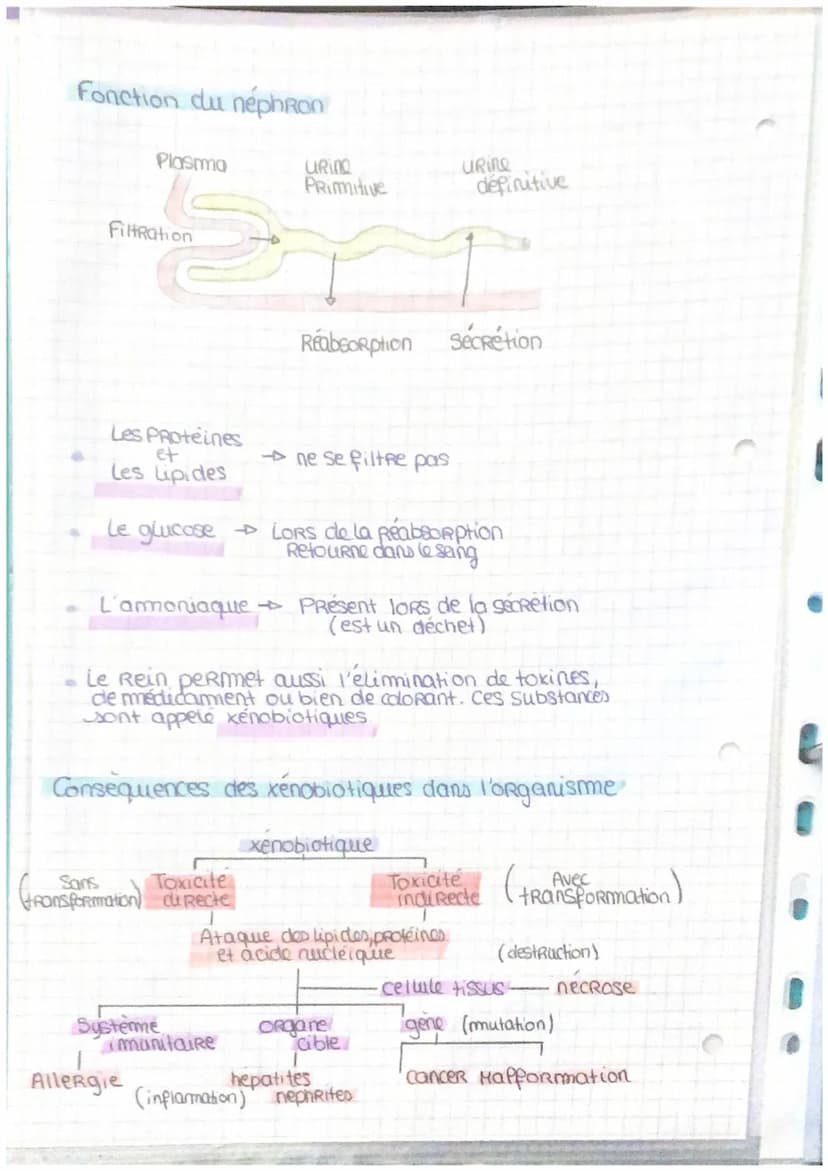 Fonction du néphron
Plasma
urine
Primitive
urine
définitive
Filtration
Réabsorption
Sécrétion
Les Protéines
et
Les Lipides
→ ne se filtre pas
Le glucose → Lors de la réabsorption
Retourne dans le sang
L'ammoniaque → Présent lors de la sécrétion
(est un déchet)
Le Rein permet aussi l'élimination de toxines,
de médicamment ou bien de colorant. Ces substances
sont appelé xénobiotiques
Conséquences des xénobiotiques dans l'organisme
xénobiotique
(Sans
transformation)
Toxicité
directe
Toxicité
indirecte
(Avec
transformation)
Ataque des lipides, protéines
et acide nucléique
(destruction)
cellule tissus
nécrose
Système
imunitaire
organe
cible
gène (mutation)
Allergie
(inflammation)
hépatites
néphrites
cancer Malformation